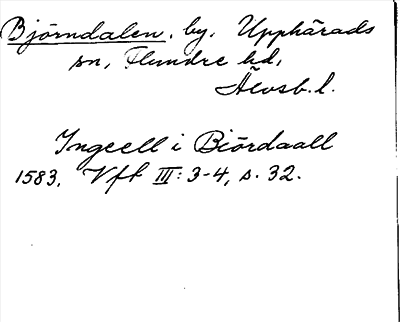 Björndalen, by, Upphärads
sn, Flundre hd,
Älvsb. l.
Ingeell i Biördaall
1583. Vft III: 3-4, s. 32.